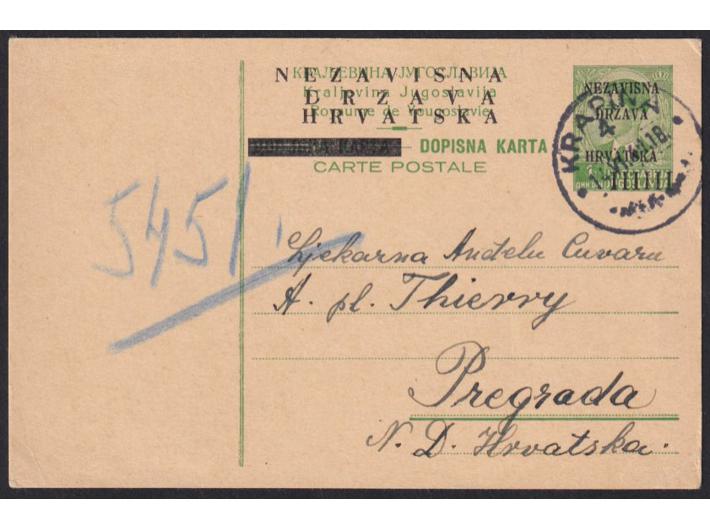 NEZAVISNA
КРАЉЕВИНА ЈУГОСЛАВИЈА
DRŽAVA
Kraljevina Jugoslavija
HRVATSKA
Royaume de Yougoslavie
DOPISNA KARTA
CARTE POSTALE
NEZAVISNA
DRŽAVA
HRVATSKA
KRAPINA
5451
Ljekarna Anđelu Čuvaru
A. pl. Thierry
Pregrada
N. D. Hrvatska.